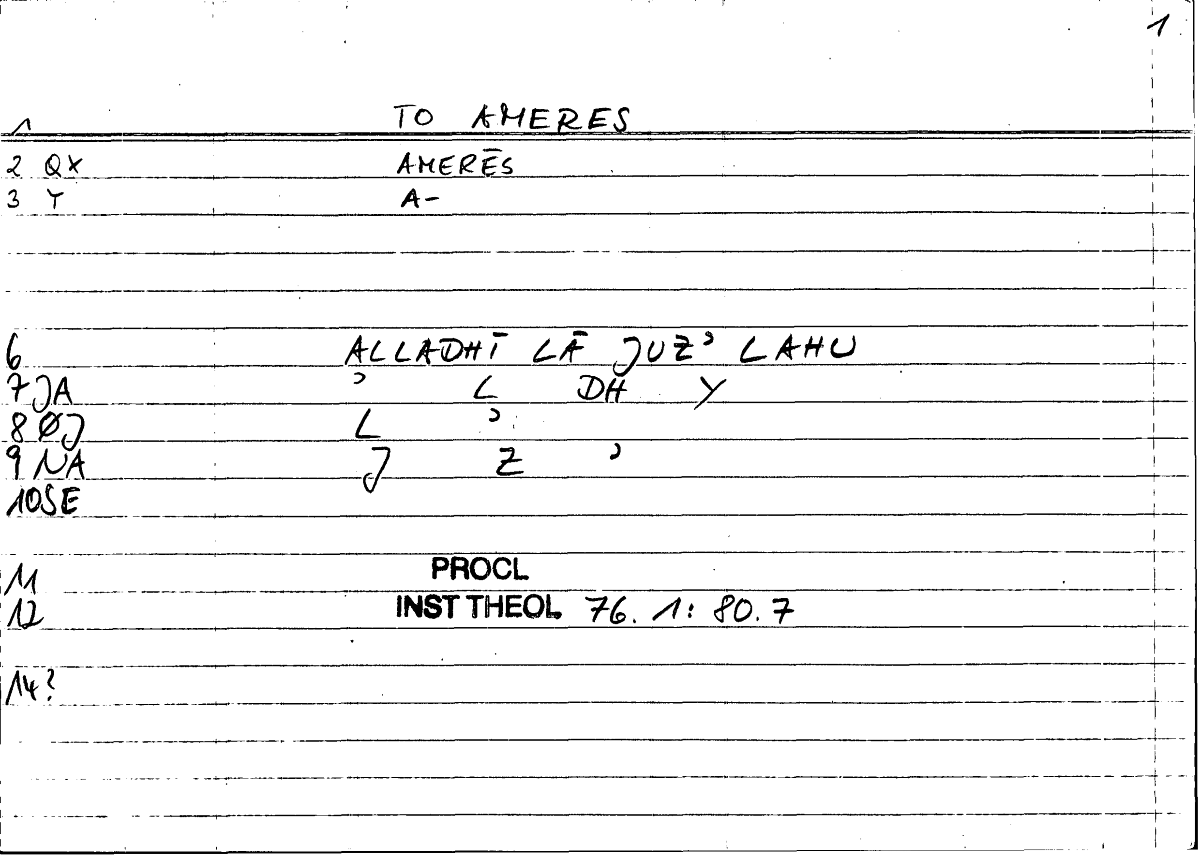 1
1 TO AMERES
2 QX AMERĒS
3 Y A-
6 ALLADHĪ LĀ JUZʾ LAHU
7 JA ʾ L DH Y
8 ØJ L ʾ
9 NA J Z ʾ
10 SE
11 PROCL
12 INST THEOL 76. 1: 80.7
14?